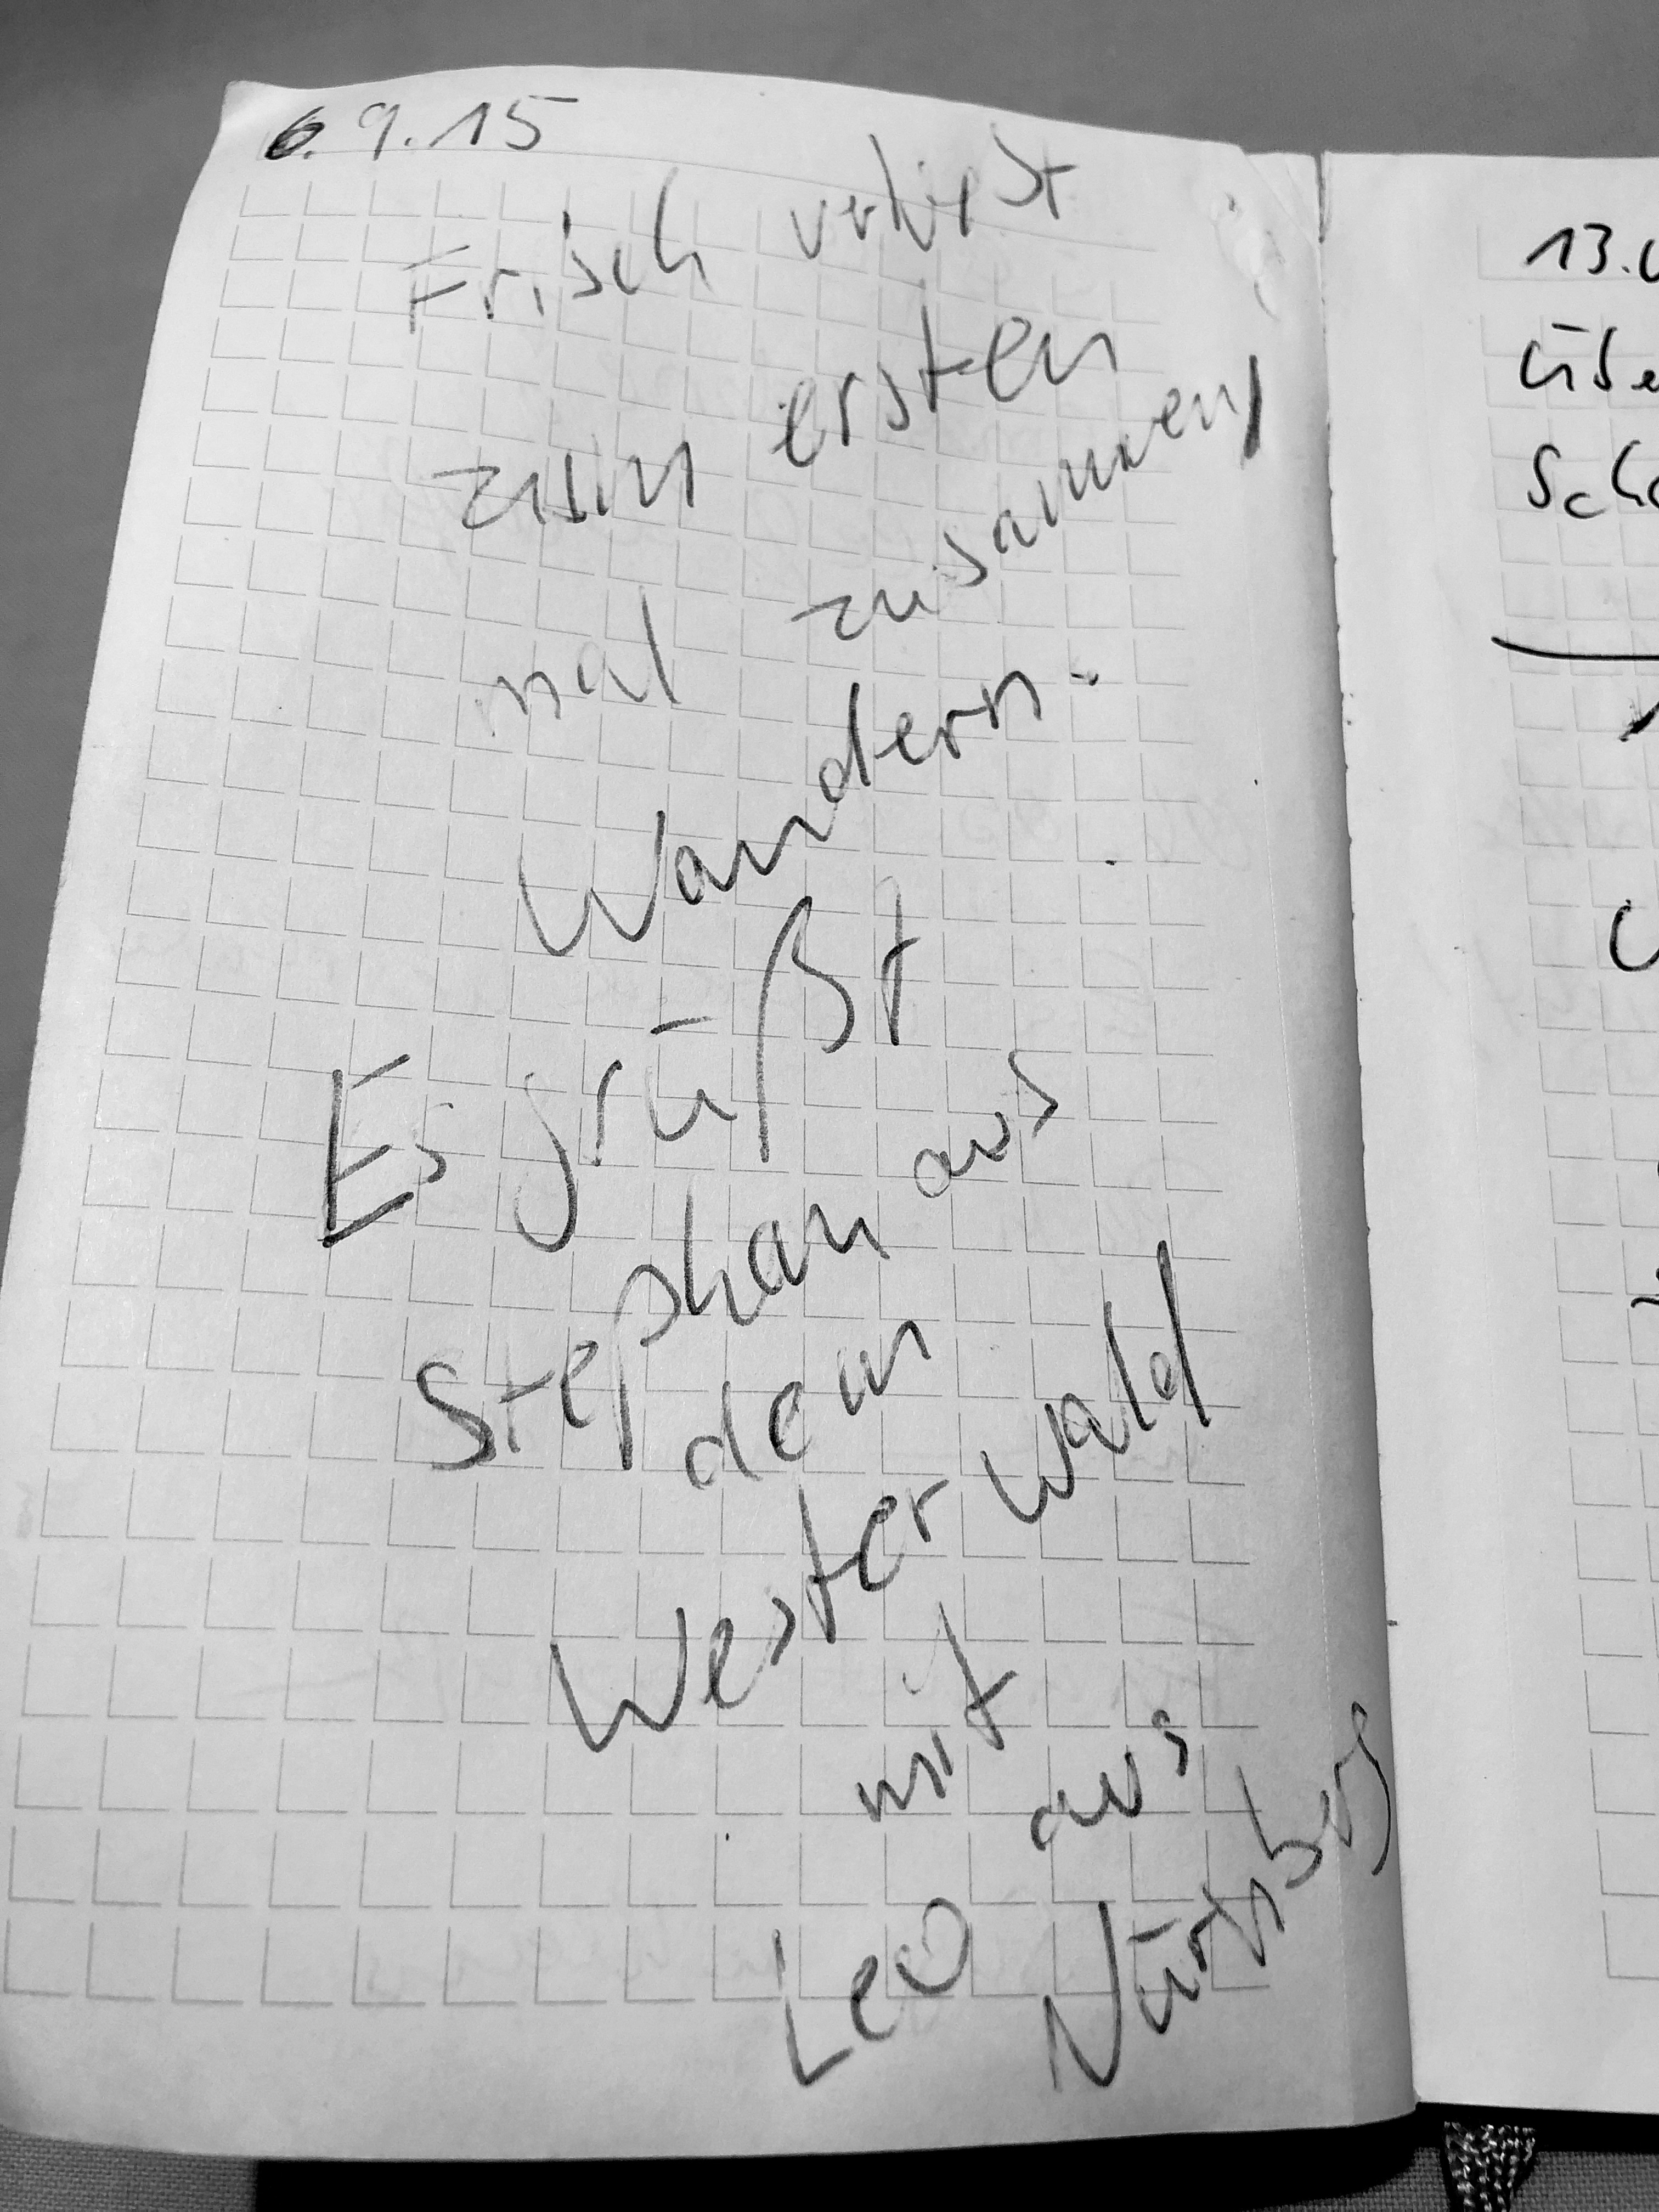 6.9.15
Frisch verliebt
zum ersten
mal zusammen
Wandern.
Es grüßt
Stephan aus
dem
Westerwald
mit
Leo aus
Nürnberg
13.